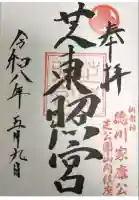 奉拝
御祭神
徳川家康公
芝公園山内鎮座
芝東照宮
令和八年
五月九日